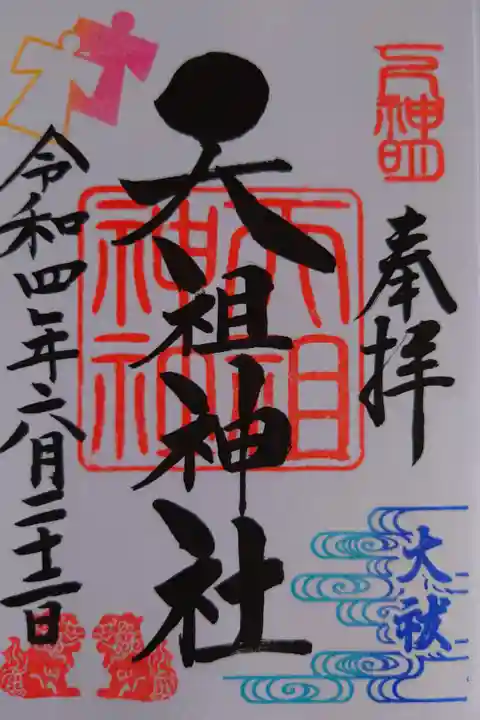 奉拝
天祖神社
天祖
神社
大祓
令和四年六月二十二日